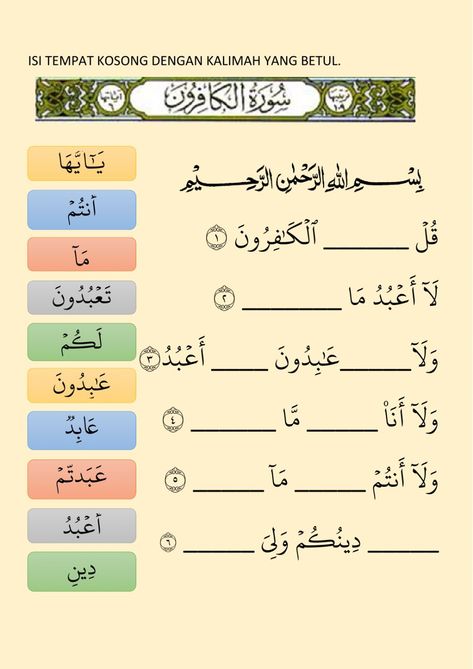 ISI TEMPAT KOSONG DENGAN KALIMAH YANG BETUL.
سُورَةُ الكَافِرُونَ
بِسْمِ اللهِ الرَّحْمٰنِ الرَّحِيْمِ
يَـٰٓأَيُّهَا
أَنتُمْ
مَآ
تَعْبُدُونَ
لَكُمْ
عَـٰبِدُونَ
عَابِدٌ
عَبَدتُّمْ
أَعْبُدُ
دِينِ
قُلْ ________ ٱلْكَـٰفِرُونَ ١
لَآ أَعْبُدُ مَا _________ ٢
وَلَآ ______عَـٰبِدُونَ _____ أَعْبُدُ ٣
وَلَآ أَنَا۠ ______ مَّا ______ ٤
وَلَآ أَنتُمْ ______ مَآ ______ ٥
______ دِينُكُمْ وَلِىَ ______ ٦